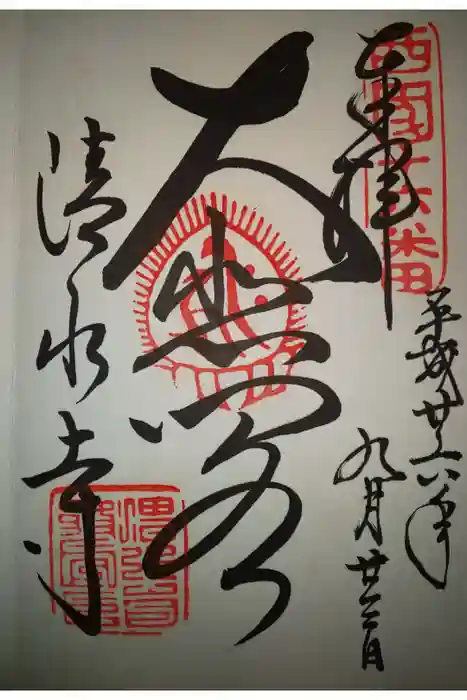 西国十六番
奉拝
平成廿六年
九月廿六日
大悲閣
清水寺